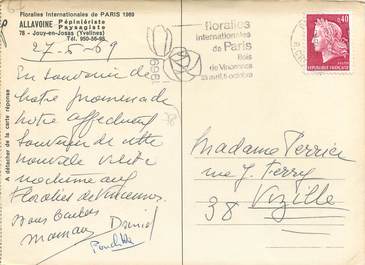 Floralies Internationales de PARIS 1969
ALLAVOINE Pépiniériste
Paysagiste
78 - Jouy-en-Josas (Yvelines)
Tél. 950-56-95
27-5-69
En souvenir de
notre promenade
notre affectueux
souvenir de cette
nouvelle visite
nocturne aux
Floralies de Vincennes.
Bons baisers
maman Daniel
A détacher de la carte réponse
floralies
internationales
de Paris
Bois
de Vincennes
23 avril-5 octobre
1969
0,40
REPUBLIQUE FRANÇAISE
Madame Perrier
rue J. Ferry
38 Vizille